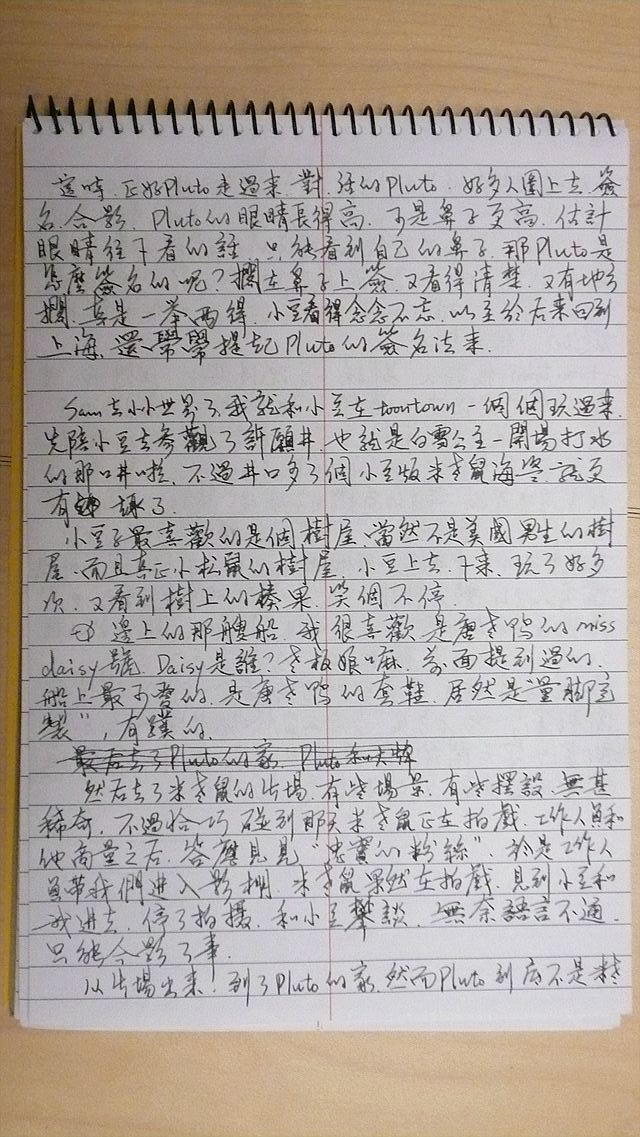 這時,正好Pluto走過來.對,活的Pluto.好多人圍上去.簽
名合影.Pluto的眼睛長得高.可是鼻子更高.估計
眼睛往下看的話.只能看到自己的鼻子.那Pluto是
怎麼簽名的呢?擱在鼻子上簽.又看得清楚.又有地方
擱.真是一舉兩得.小豆看得念念不忘.以至於后來回到
上海.還學學提起Pluto的簽名法來.
Sam去小小世界了.我就和小豆在toontown一個個玩過來.
先陪小豆去參觀了許願井.也就是白雪公主一開場打水
的那口井啦.不過井口多了個小豆版米老鼠海
有趣了.
小豆子最喜歡的是個樹屋、當然不是美國男生的樹
屋.而且真正小松鼠的樹屋.小豆上去.下來.玩了好多
次.又看到樹上的榛果.笑個不停.
邊上的那艘船.我很喜歡.是唐老鴨的miss
daisy號.Daisy是誰?老板娘嘛.前面提到過的.
船上最可愛的.是唐老鴨的套鞋.居然是"量腳定
製",有蹼的.
最后去了Pluto的家.Pluto和大
然后去了米老鼠的片場.有些場景.有些擺設.無甚
稀奇.不過恰巧碰到那天米老鼠正在拍戲.工作人員和
他商量之后.答應見見"忠實的粉絲".於是工作人
員帶我們進入影棚.米老鼠果然在拍戲.見到小豆和
我進去.停了拍攝.和小豆攀談.無奈語言不通.
只能合影了事.
從片場出來.到了Pluto的家.然而Pluto到底不是米老